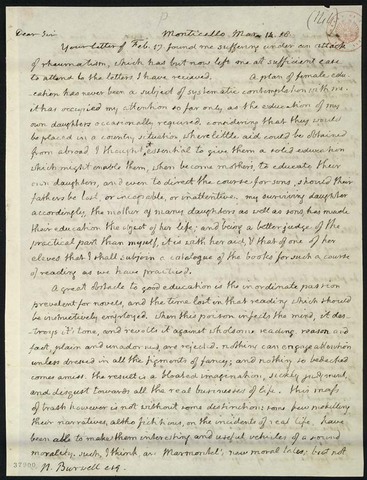 Dear Sir Monticello. Mar. 14. 18.
Your letter of Feb. 17. found me suffering under an attack
of rheumatism, which has but now left me at sufficient ease
to attend to the letters I have recieved. A plan of female edu-
cation has never been a subject of systematic contemplation with me.
it has occupied my attention so far only as the education of my
own daughters occasionally required. considering that they would
be placed in a country situation where little aid could be obtained
from abroad, I thought it essential to give them a solid education
which might enable them, when become mothers, to educate their
own daughters, and even to direct the course for sons, should their
fathers be lost, or incapable, or inattentive. my surviving daughter
accordingly, the mother of many daughters as well as sons, has made
their education the object of her life, and being a better judge of the
practical part than myself, it is with her aid, & that of one of her
eleves that I shall subjoin a catalogue of the books for such a course
of reading as we have practised.
A great obstacle to good education is the inordinate passion
prevalent for novels, and the time lost in that reading which should
be instructively employed. when this poison infects the mind, it des-
troys it's tone, and revolts it against wholsome reading. reason and
fact, plain and unadorned, are rejected. nothing can engage attention
unless dressed in all the figments of fancy; and nothing so bedecked
comes amiss. the result is a bloated imagination, sickly judgment,
and disgust towards all the real businesses of life. this mass
of trash however is not without some distinction: some few modelling
their narratives, altho fictitious, on the incidents of real life, have
been able to make them interesting and useful vehicles of a sound
morality. such, I think are Marmontel's new moral tales; but not
N. Burwell esq.
37900